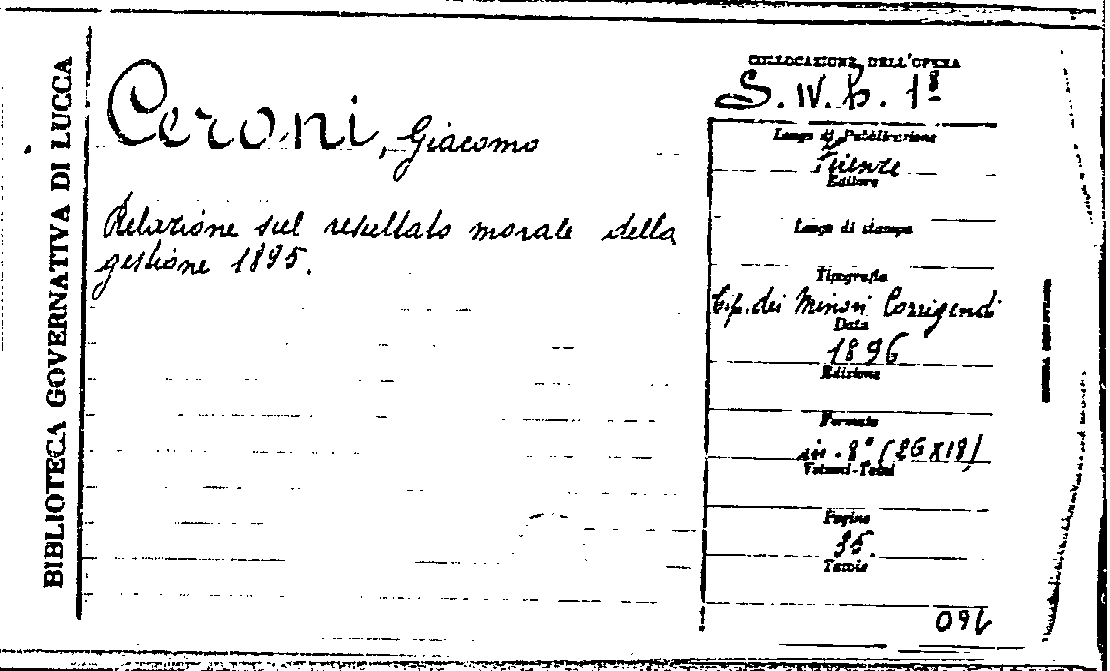 BIBLIOTECA GOVERNATIVA DI LUCCA
Ceroni, Giacomo
Relazione sul resultato morale della
gestione 1895.
COLLOCAZIONE DELL'OPERA
S. IV. b. 1ª
Luogo di Pubblicazione
Firenze
Editore
Luogo di stampa
Tipografia
Tip. dei Minori Corrigendi
Data
1896
Edizione
Formato
in-8° (26X18)
Volumi-Tomi
Pagine
35.
Tavole